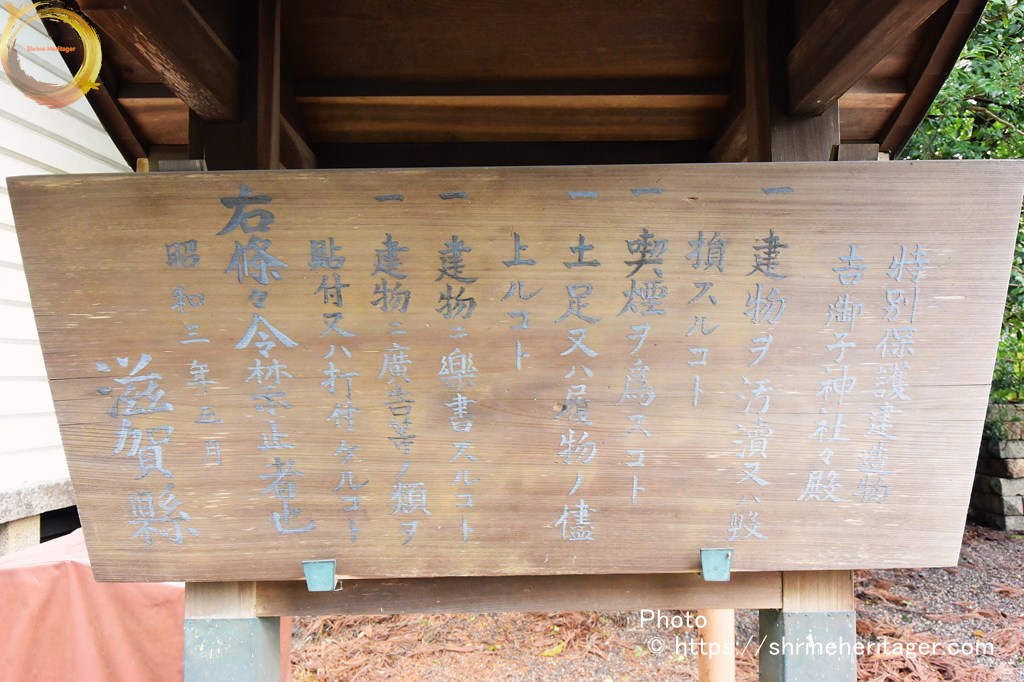 特別保護建造物
吉御子神社々殿
一 建物ヲ汚瀆又ハ毀
損スルコト
一 喫煙ヲ為スコト
一 土足又ハ履物ノ儘
上ルコト
一 建物ニ樂書スルコト
一 建物ニ廣告等ノ類ヲ
貼付又ハ打付ケルコト
右條々令禁止者也
昭和三年五月
滋賀縣
Shrine Heritager
Photo
© https://shrineheritager.com